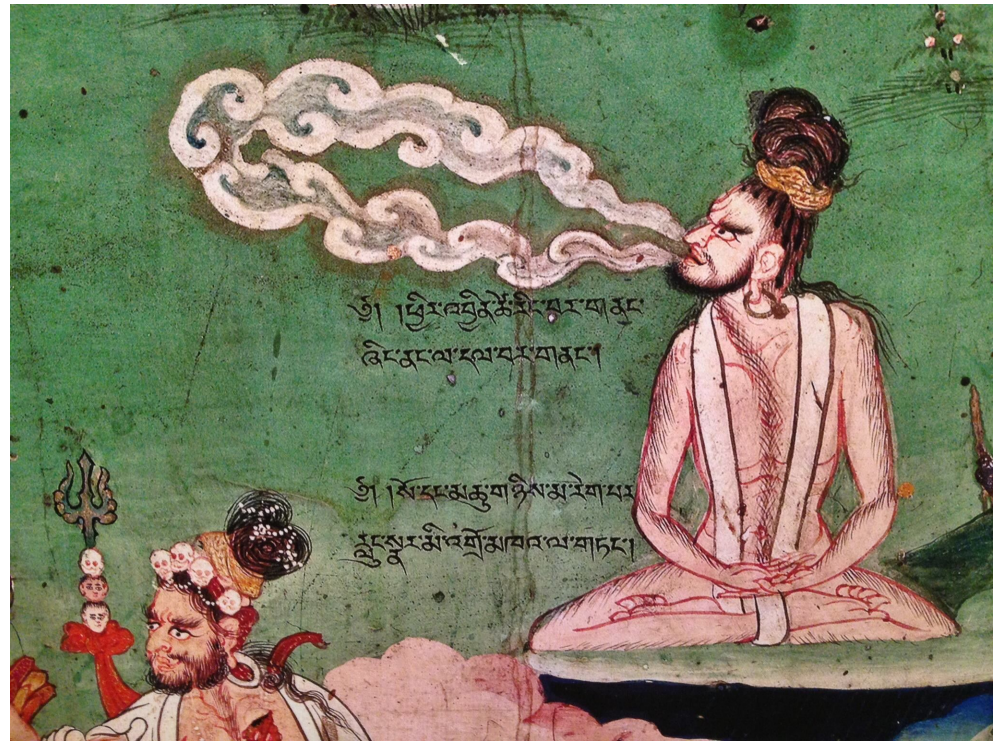 །ཕྱིར་འབྱིན་ཚེ་རིང་བར་གནང་
ཞིང་ནང་ལ་དལ་བར་གནང་།
།སོ་དང་མཆུ་གཉིས་མ་རེག་པར
རླུང་སྣར་མི་འགྲོ་མཁའ་ལ་གཏང་།